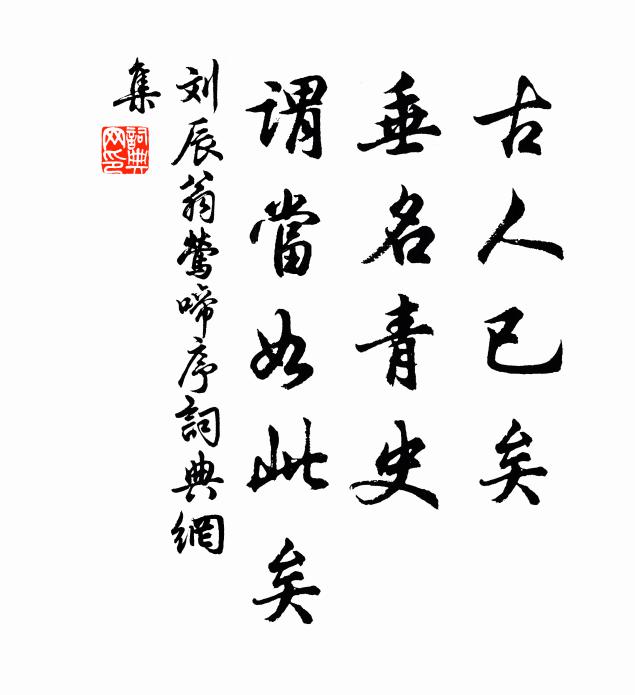 古人已矣
垂名青史
謂當如此矣
刘辰翁鶯啼序詞典網
集
詞典网印